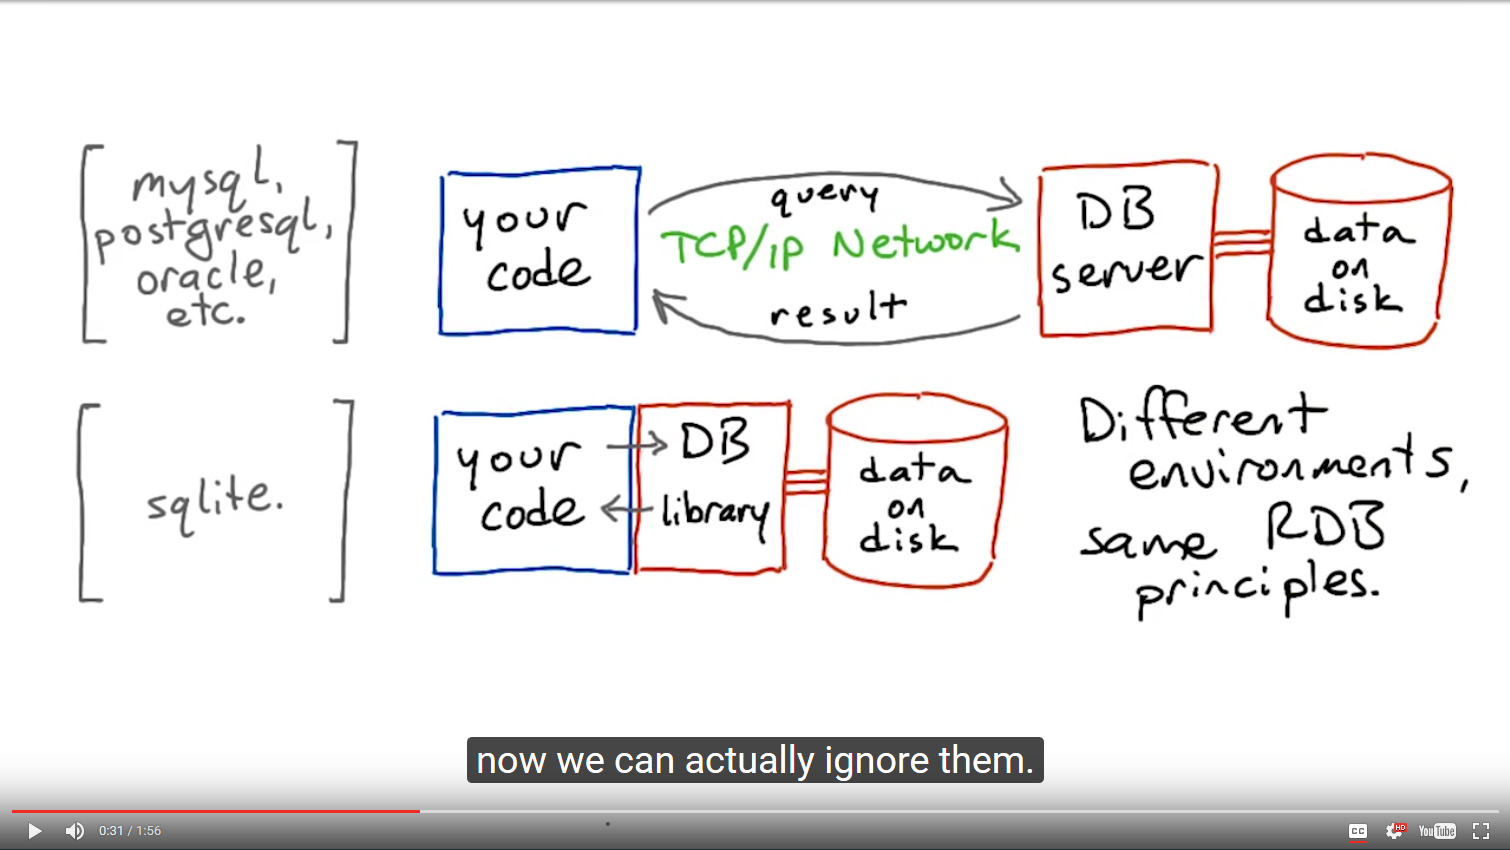 mysql,
postgresql,
oracle,
etc.
your
code
query
TCP/IP Network
result
DB
server
data
on
disk
sqlite.
your
code
DB
library
data
on
disk
Different
environments,
same RDB
principles.
now we can actually ignore them.
0:31 / 1:56
CC
HD
YouTube